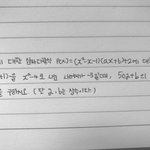 에 대한 삼차다항식 P(x)=(x²-x-1)(ax+b)+2에 대
)을 x²-4로 나눈 나머지가 -3일때, 50a+b의
구하시오. (단 a, b는 상수이다)